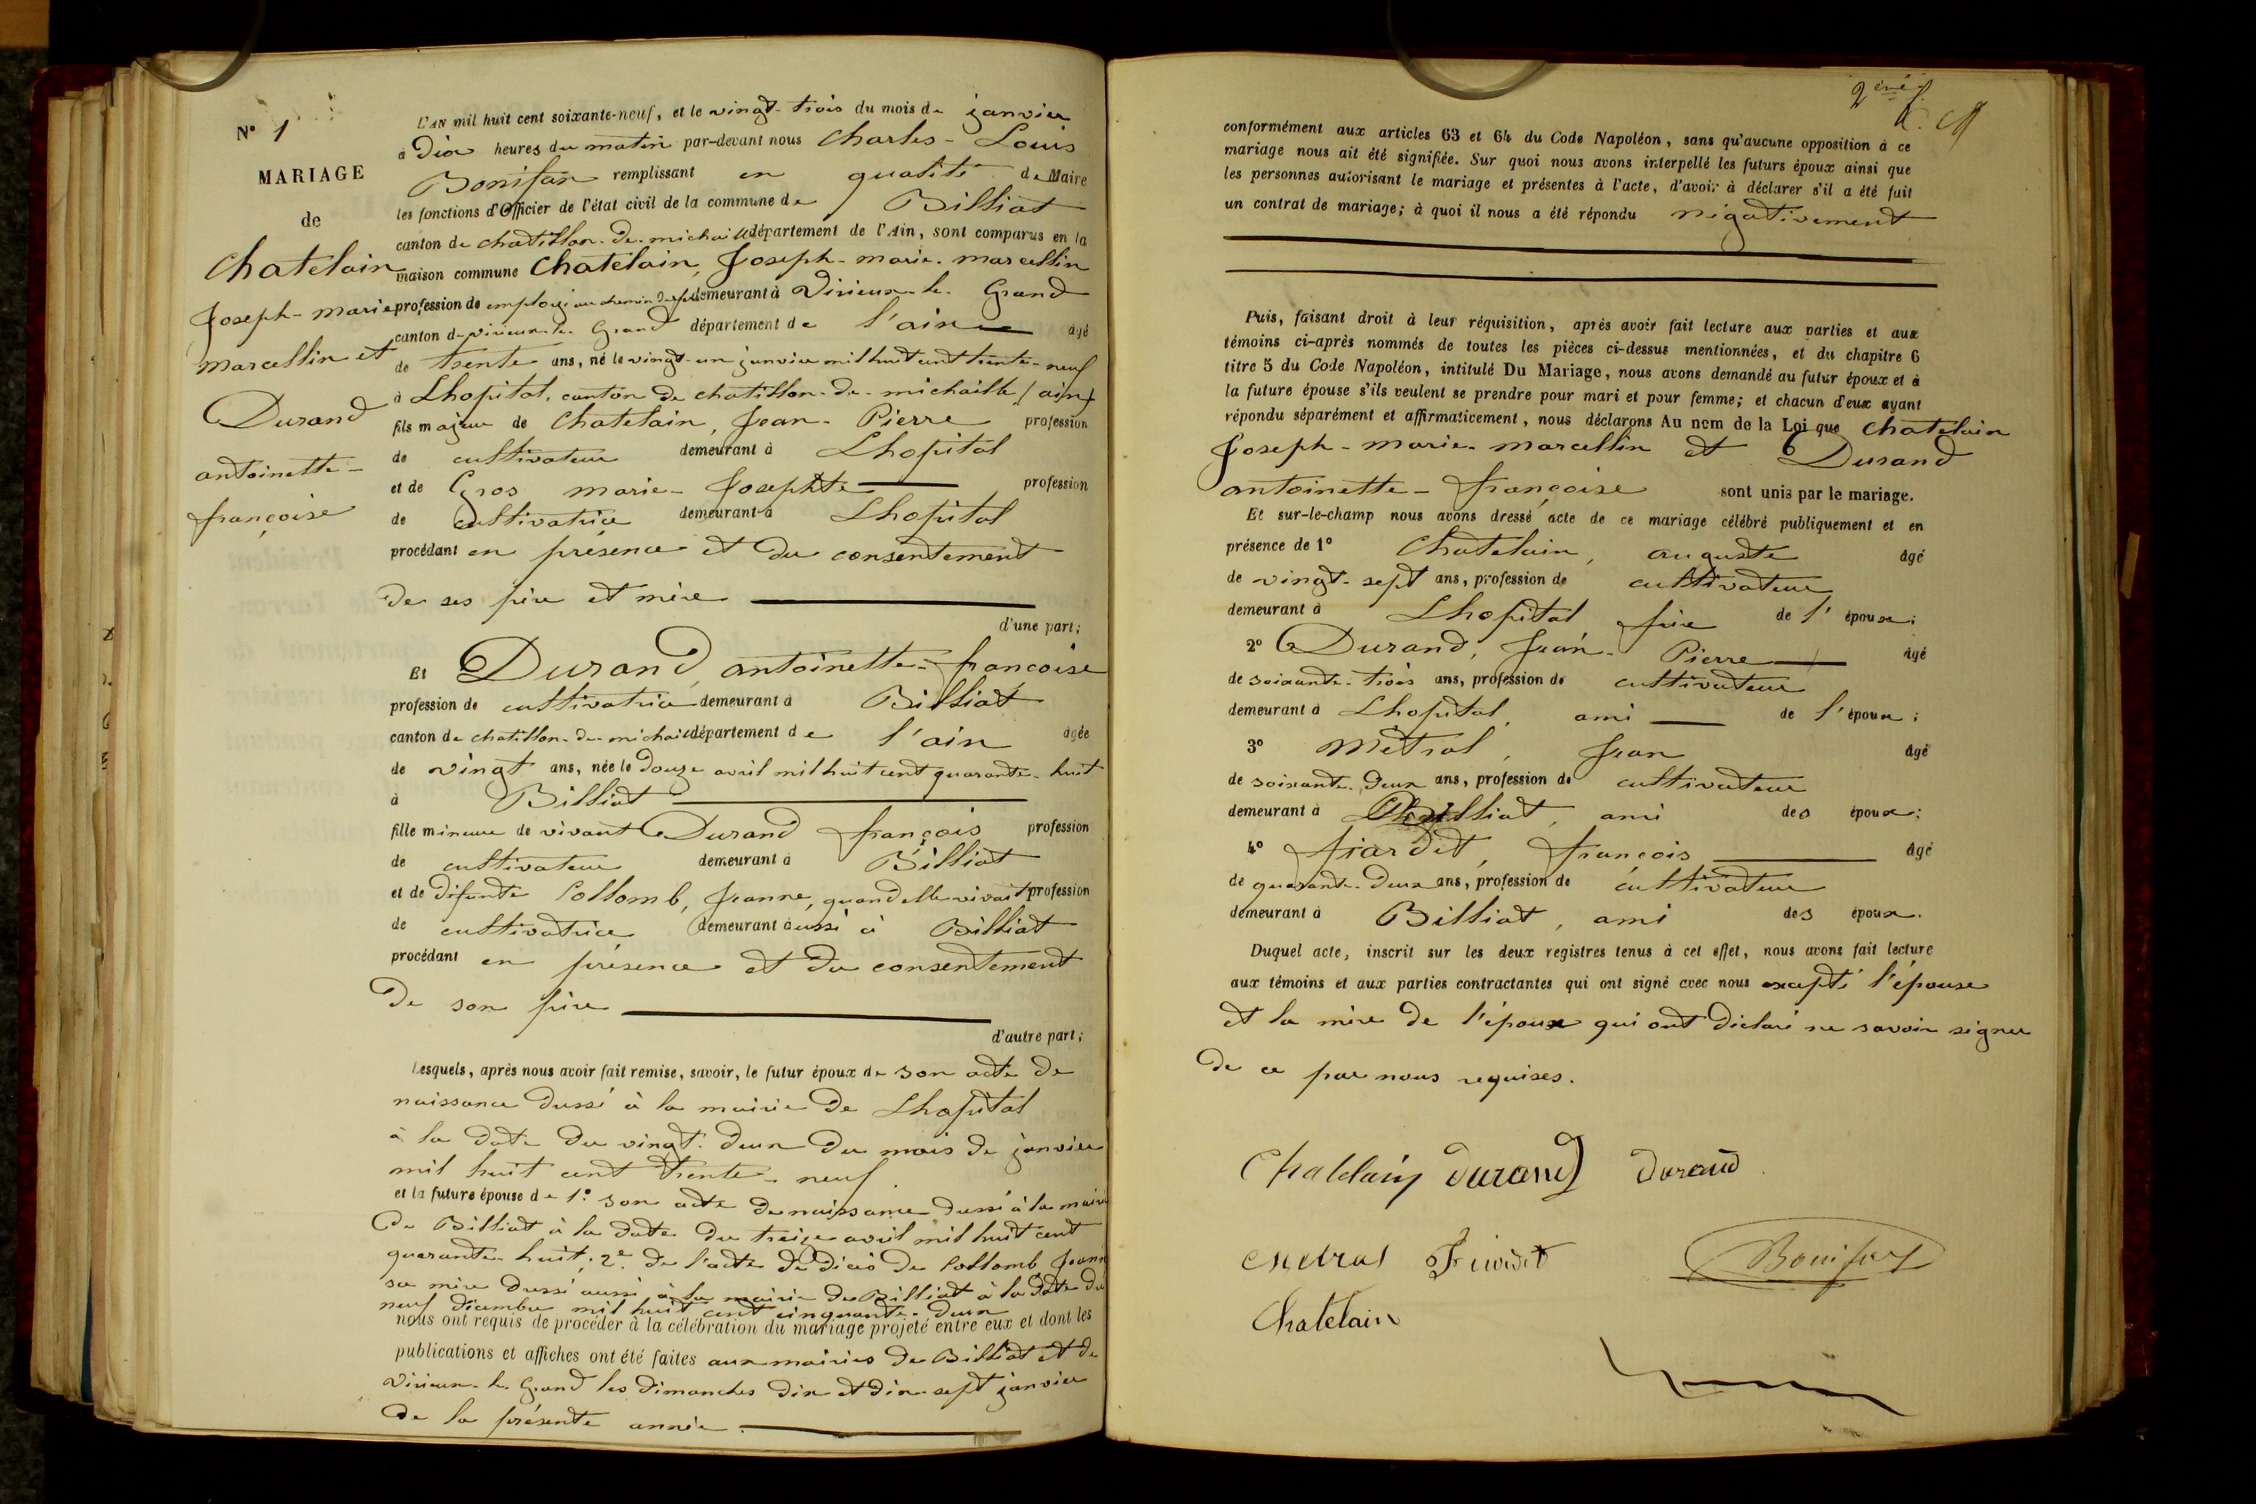 N° 1
MARIAGE
de
Chatelain
Joseph-marie
marcellin et
Durand
antoinette-
françoise
L'AN mil huit cent soixante-neuf, et le vingt-trois du mois de janvier
à Dix heures du matin par-devant nous Charles-Louis
Bonifax remplissant en qualité de Maire
les fonctions d'Officier de l'état civil de la commune de Billiat
canton de chatillon-de-michaille département de l'Ain, sont comparus en la
maison commune Chatelain, Joseph-marie-marcellin
profession de employé au chemin de fer demeurant à Virieux-le-Grand
canton de virieux-le-Grand département de l'ain âgé
de trente ans, né le vingt-un janvier mil huit cent trente-neuf
à Lhopital, canton de chatillon-de-michaille (ain)
fils majeur de Chatelain, Jean-Pierre profession
de cultivateur demeurant à Lhopital
et de Gros marie-Josephte profession
de cultivatrice demeurant à Lhopital
procédant en présence et du consentement
de ses père et mère
d'une part;
Et Durand, antoinette-francoise
profession de cultivatrice demeurant à Billiat
canton de chatillon-de-michaille département de l'ain âgée
de vingt ans, née le Douze avril mil huit cent quarante-huit
à Billiat
fille mineure de vivant Durand françois profession
de cultivateur demeurant à Billiat
et de défunte Collomb, Jeanne, quand elle vivait profession
de cultivatrice demeurant aussi à Billiat
procédant en présence et du consentement
De son père
d'autre part;
Lesquels, après nous avoir fait remise, savoir, le futur époux de son acte de
naissance dressé à la mairie de Lhopital
à la date du vingt-deux du mois de janvier
mil huit cent trente-neuf.
et la future épouse de 1.° son acte de naissance dressé à la mairie
de Billiat à la date du treize avril mil huit cent
quarante-huit; 2.° de l'acte de décès de Collomb Jeanne
sa mère dressé aussi à la mairie de Billiat à la date du
neuf décembre mil huit cent cinquante-deux
nous ont requis de procéder à la célébration du mariage projeté entre eux et dont les
publications et affiches ont été faites aux mairies de Billiat et de
Virieux-le-Grand les dimanches dix et dix-sept janvier
de la présente année.
conformément aux articles 63 et 64 du Code Napoléon, sans qu'aucune opposition à ce
mariage nous ait été signifiée. Sur quoi nous avons interpellé les futurs époux ainsi que
les personnes autorisant le mariage et présentes à l'acte, d'avoir à déclarer s'il a été fait
un contrat de mariage; à quoi il nous a été répondu négativement
Puis, faisant droit à leur réquisition, après avoir fait lecture aux parties et aux
témoins ci-après nommés de toutes les pièces ci-dessus mentionnées, et du chapitre 6
titre 5 du Code Napoléon, intitulé Du Mariage, nous avons demandé au futur époux et à
la future épouse s'ils veulent se prendre pour mari et pour femme; et chacun d'eux ayant
répondu séparément et affirmativement, nous déclarons Au nom de la Loi que Chatelain
Joseph-marie-marcellin et Durand
antoinette-françoise sont unis par le mariage.
Et sur-le-champ nous avons dressé acte de ce mariage célébré publiquement et en
présence de 1° Chatelain, auguste âgé
de vingt-sept ans, profession de cultivateur
demeurant à Lhopital frère de l'époux;
2° Durand, Jean-Pierre âgé
de soixante-trois ans, profession de cultivateur
demeurant à Lhopital, ami de l'époux;
3° métral, Jean âgé
de soixante-deux ans, profession de cultivateur
demeurant à Billiat, ami des époux;
4° fiardet, françois âgé
de quarante-deux ans, profession de cultivateur
demeurant à Billiat, ami des époux.
Duquel acte, inscrit sur les deux registres tenus à cet effet, nous avons fait lecture
aux témoins et aux parties contractantes qui ont signé avec nous excepté l'épouse
et la mère de l'époux qui ont déclaré ne savoir signer
de ce par nous requises.
Chatelain Durand Durand
Metral Bonifax
Chatelain